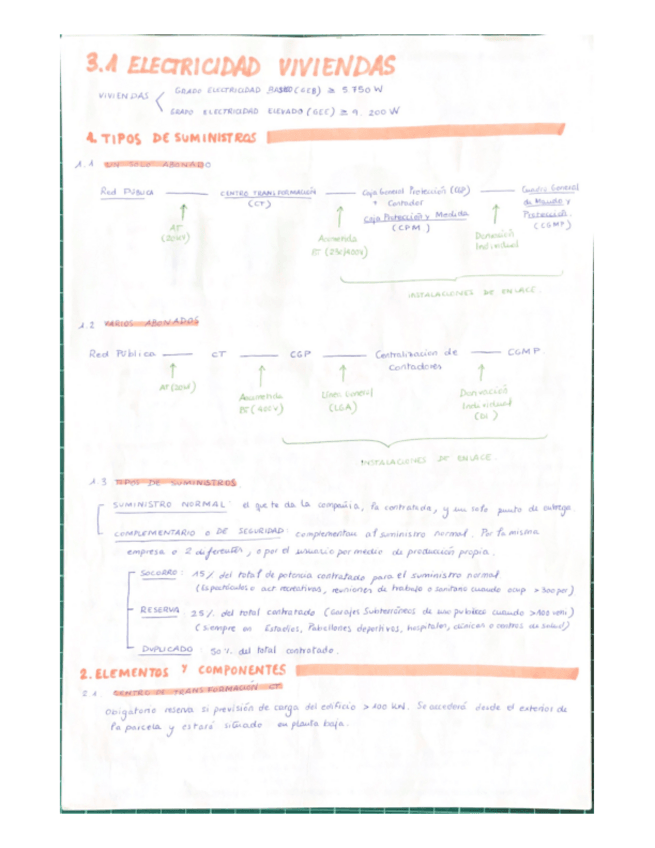 3.1 ELECTRICIDAD VIVIENDAS
VIVIENDAS < GRADO ELECTRICIDAD BASICO (GEB) ≥ 5 750 W
GRADO ELECTRICIDAD ELEVADO (GEE) ≥ 9. 200 W
1. TIPOS DE SUMINISTROS
1.1 UN SOLO ABONADO
Red Pública — CENTRO TRANSFORMACIÓN (CT) — Caja General Protección (CGP) + Contador — Cuadro General de Mando y Protección (CGMP)
Caja Protección y Medida (CPM)
AT (20kV)
Acometida BT (230/400V)
Derivación Individual
INSTALACIONES DE ENLACE.
1.2 VARIOS ABONADOS
Red Pública — CT — CGP — Centralización de Contadores — CGMP.
AT (20kV)
Acometida BT (400V)
Línea General (LGA)
Derivación Individual (DI)
INSTALACIONES DE ENLACE.
1.3 TIPOS DE SUMINISTROS.
SUMINISTRO NORMAL: el que te da la compañia, la contratada, y un solo punto de entrega.
COMPLEMENTARIO o DE SEGURIDAD: complementan al suministro normal. Por la misma
empresa o 2 diferentes, o por el usuario por medio de producción propia.
SOCORRO: 15% del total de potencia contratada para el suministro normal.
(Espectáculos o act recreativas, reuniones de trabajo o sanitario cuando ocup >300 per)
RESERVA 25% del total contratado (Garajes Subterráneos de uso público cuando >100 vehi)
(siempre en Estadios, Pabellones deportivos, hospitales, clinicas o centros de salud)
DUPLICADO 50% del total contratado.
2. ELEMENTOS Y COMPONENTES
2.1. CENTRO DE TRANSFORMACIÓN CT
Obligatorio reserva si previsión de carga del edificio >100 kW. Se accederá desde el exterior de
la parcela y estará situado en planta baja.